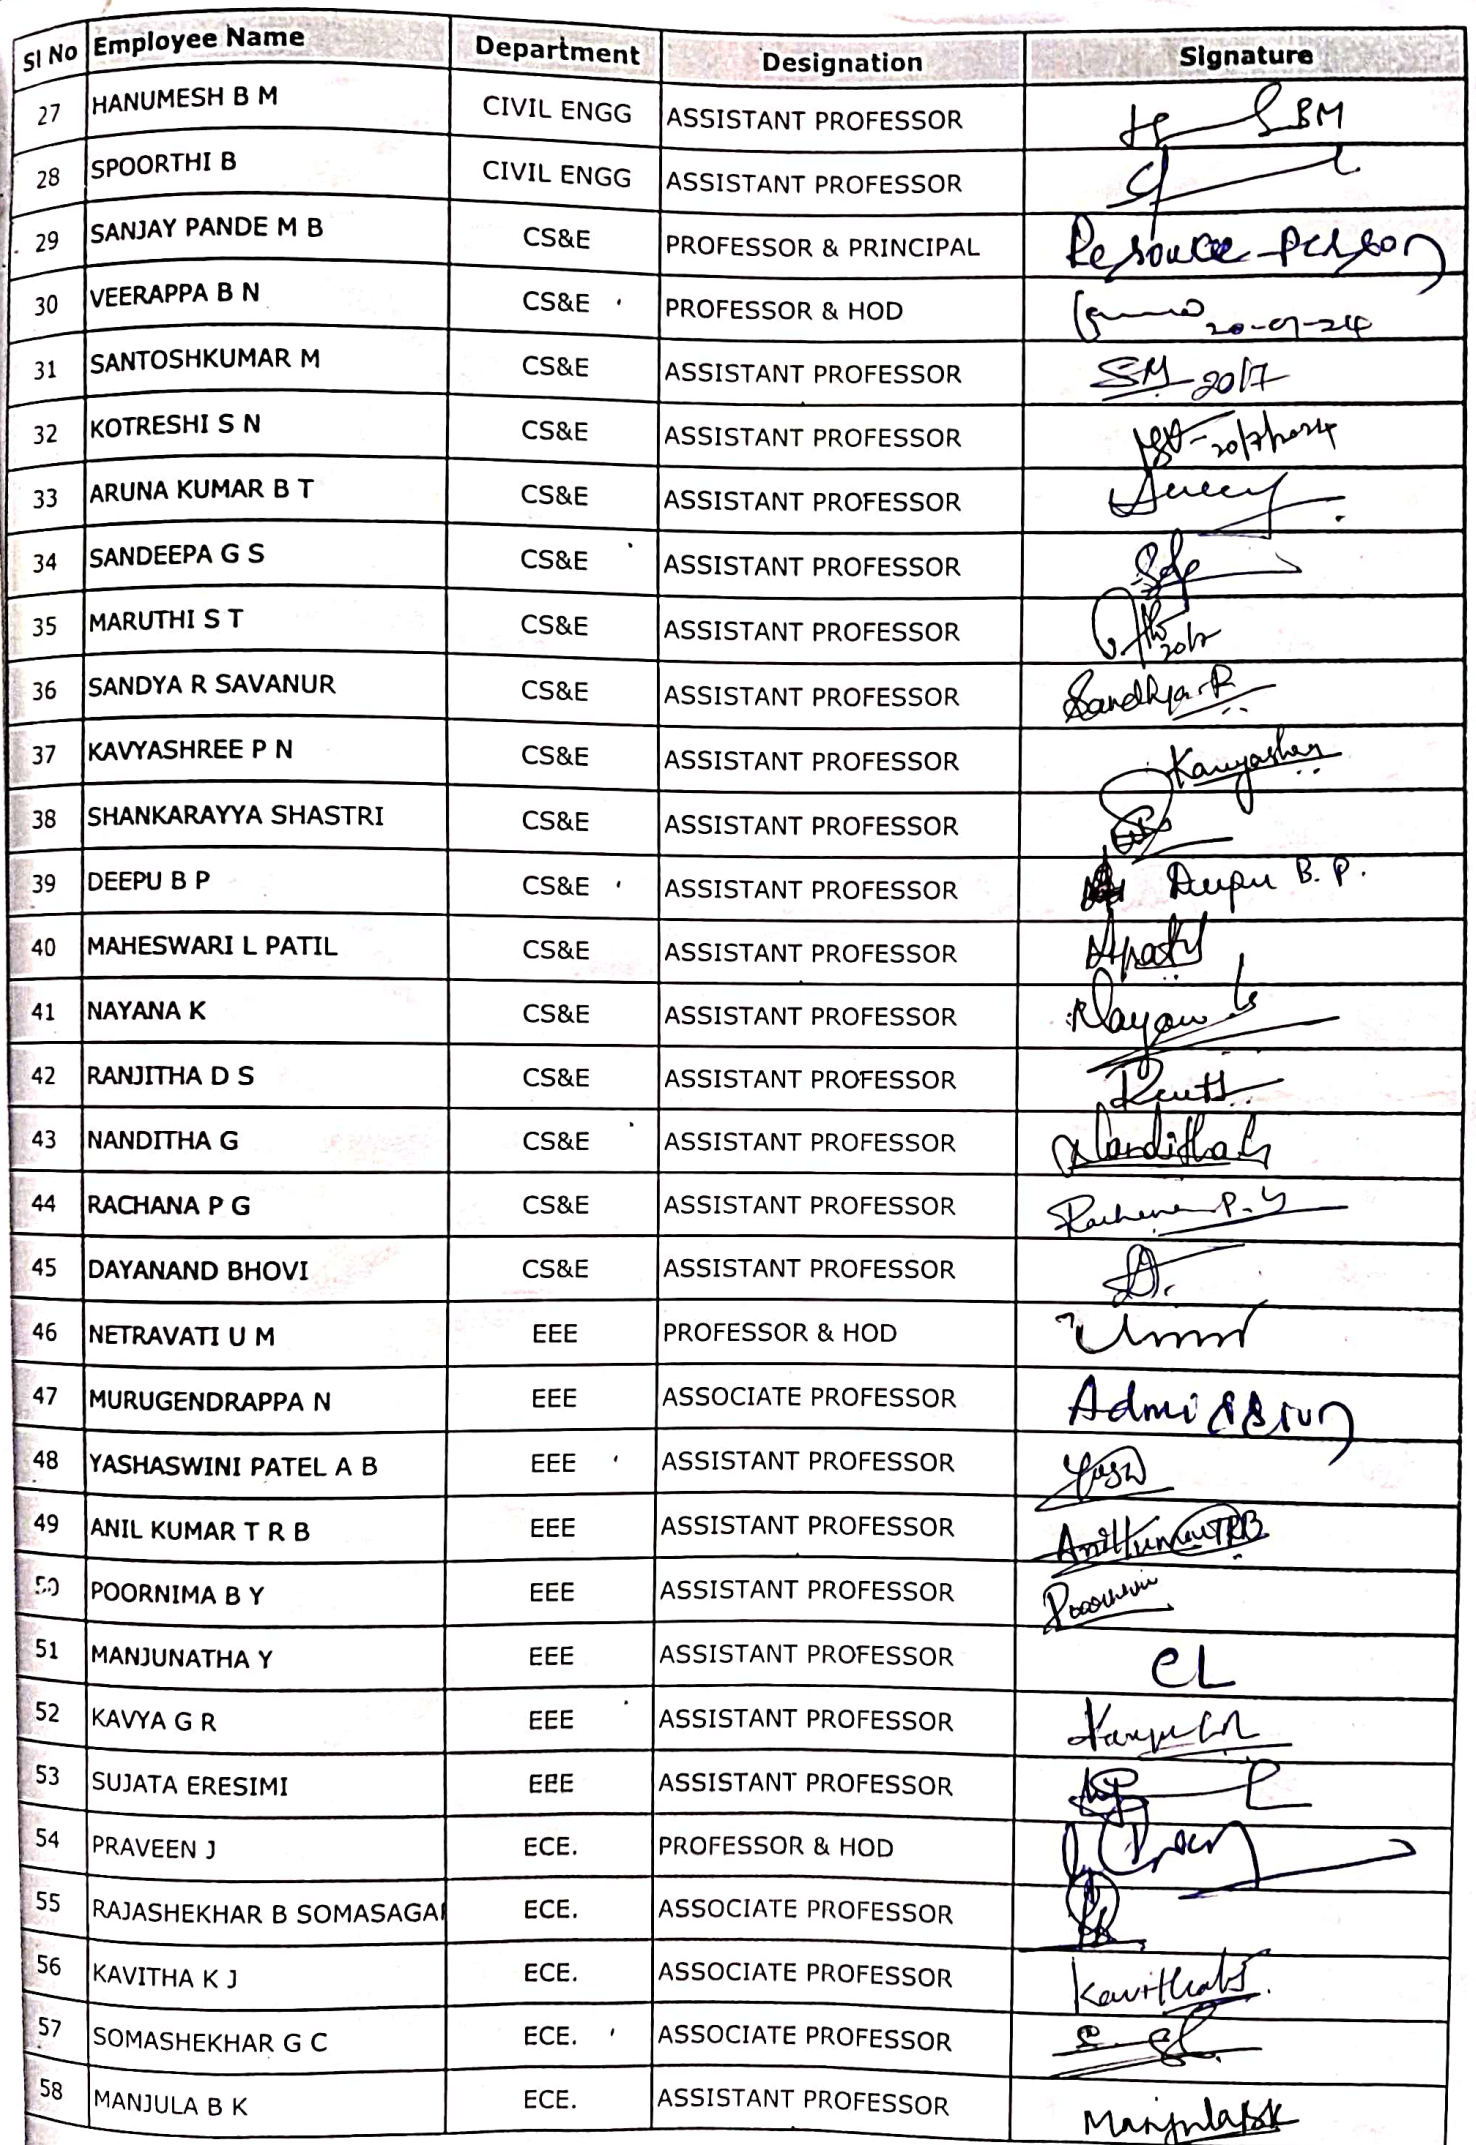 Sl No Employee Name Department Designation Signature
27 HANUMESH B M CIVIL ENGG ASSISTANT PROFESSOR BM
28 SPOORTHI B CIVIL ENGG ASSISTANT PROFESSOR
29 SANJAY PANDE M B CS&E PROFESSOR & PRINCIPAL Resource person
30 VEERAPPA B N CS&E PROFESSOR & HOD
31 SANTOSHKUMAR M CS&E ASSISTANT PROFESSOR SM 20/7
32 KOTRESHI S N CS&E ASSISTANT PROFESSOR 20/7/2024
33 ARUNA KUMAR B T CS&E ASSISTANT PROFESSOR
34 SANDEEPA G S CS&E ASSISTANT PROFESSOR
35 MARUTHI S T CS&E ASSISTANT PROFESSOR 20/7
36 SANDYA R SAVANUR CS&E ASSISTANT PROFESSOR Sandhya.R
37 KAVYASHREE P N CS&E ASSISTANT PROFESSOR
38 SHANKARAYYA SHASTRI CS&E ASSISTANT PROFESSOR
39 DEEPU B P CS&E ASSISTANT PROFESSOR Deepu B. P.
40 MAHESWARI L PATIL CS&E ASSISTANT PROFESSOR
41 NAYANA K CS&E ASSISTANT PROFESSOR
42 RANJITHA D S CS&E ASSISTANT PROFESSOR
43 NANDITHA G CS&E ASSISTANT PROFESSOR Nanditha G
44 RACHANA P G CS&E ASSISTANT PROFESSOR Rachana P. G
45 DAYANAND BHOVI CS&E ASSISTANT PROFESSOR
46 NETRAVATI U M EEE PROFESSOR & HOD
47 MURUGENDRAPPA N EEE ASSOCIATE PROFESSOR Admission
48 YASHASWINI PATEL A B EEE ASSISTANT PROFESSOR
49 ANIL KUMAR T R B EEE ASSISTANT PROFESSOR Anil Kumar TRB
50 POORNIMA B Y EEE ASSISTANT PROFESSOR
51 MANJUNATHA Y EEE ASSISTANT PROFESSOR CL
52 KAVYA G R EEE ASSISTANT PROFESSOR Kavya G R
53 SUJATA ERESIMI EEE ASSISTANT PROFESSOR
54 PRAVEEN J ECE. PROFESSOR & HOD
55 RAJASHEKHAR B SOMASAGAR ECE. ASSOCIATE PROFESSOR
56 KAVITHA K J ECE. ASSOCIATE PROFESSOR
57 SOMASHEKHAR G C ECE. ASSOCIATE PROFESSOR
58 MANJULA B K ECE. ASSISTANT PROFESSOR Manjula BK